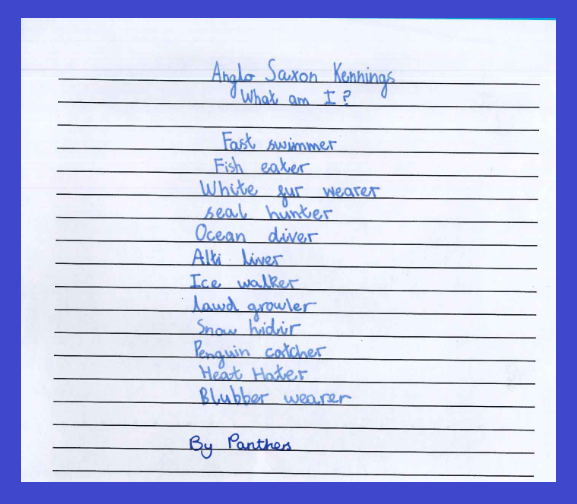 Anglo Saxon Kennings
What am I?
Fast swimmer
Fish eater
White fur wearer
seal hunter
Ocean diver
Alti liver
Ice walker
lawd growler
Snow hidir
Penguin catcher
Heat Hater
Blubber wearer
By Panthers